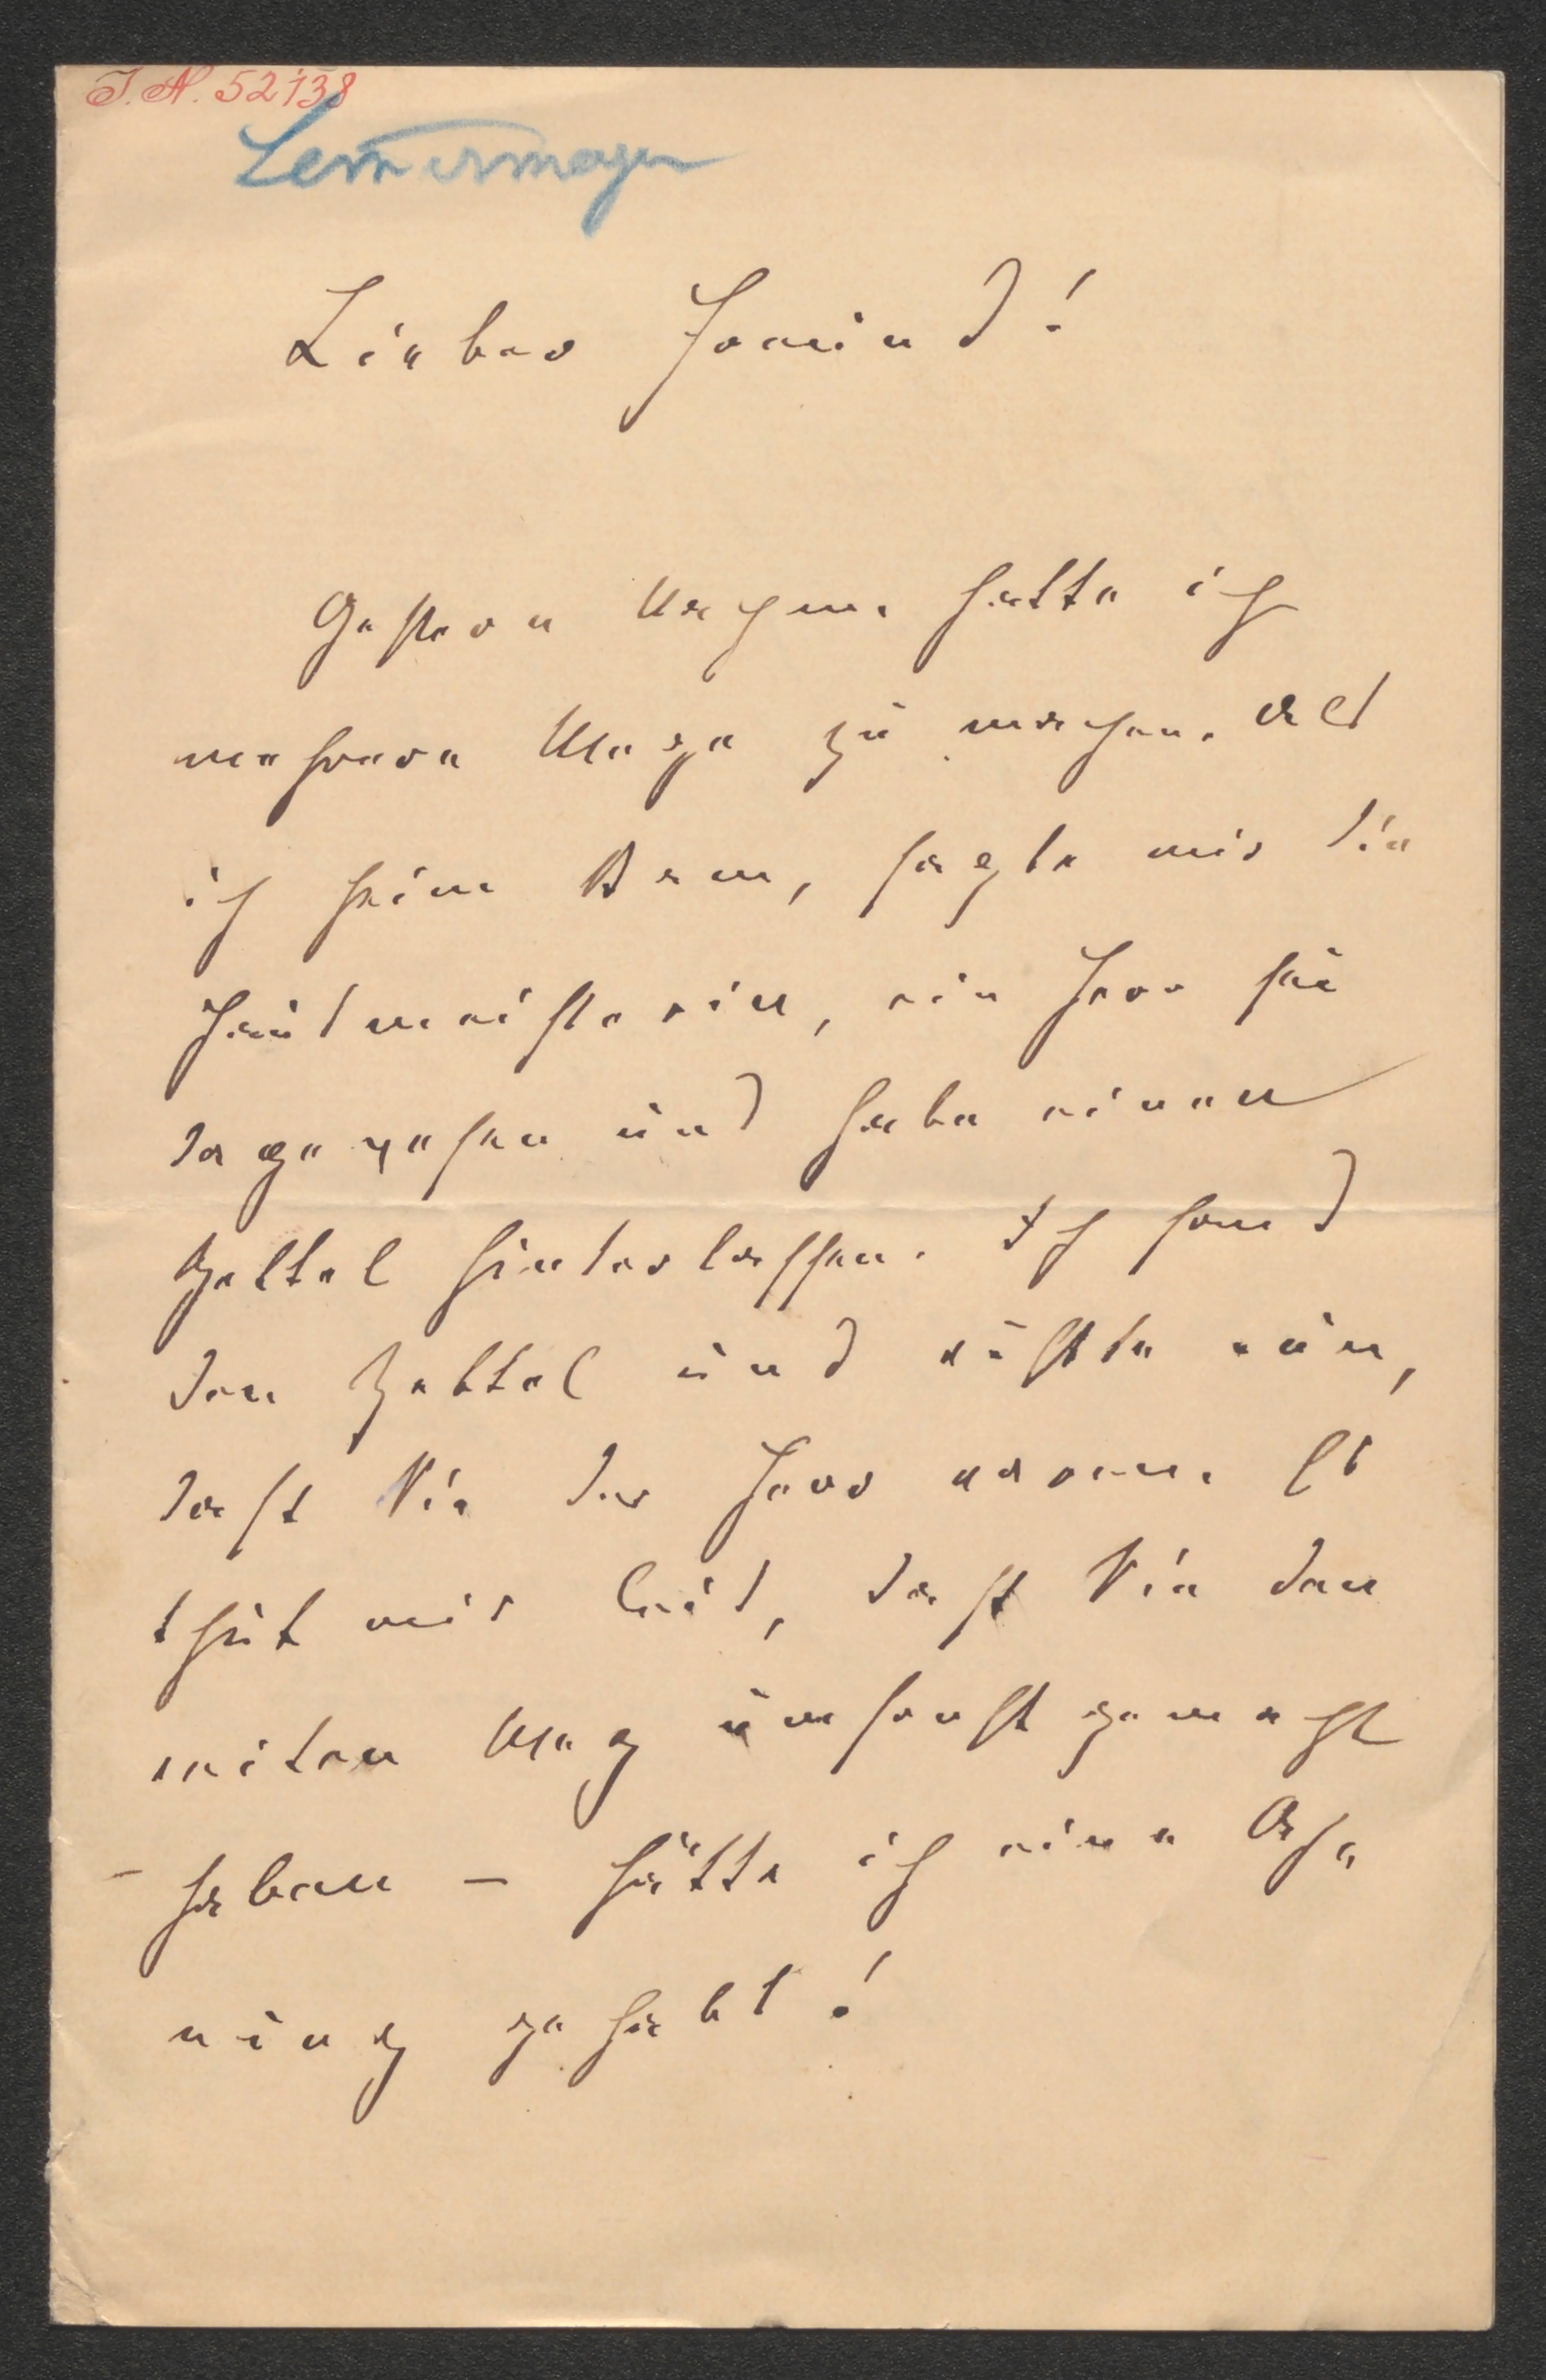 J. N. 52138
Lemmermayer
Lieber Freund!
Gestern Nachm. hatte ich
mehrere Wege zu machen. Als
ich heim kam, sagte mir die
Hausmeisterin, ein Herr sei
dagewesen und habe einen
Zettel hinterlassen. Ich fand
den Zettel und wußte nun,
daß Sie der Herr waren. Es
thut mir leid, daß Sie den
weiten Weg umsonst gemacht
haben – hätte ich eine Ah-
nung gehabt!